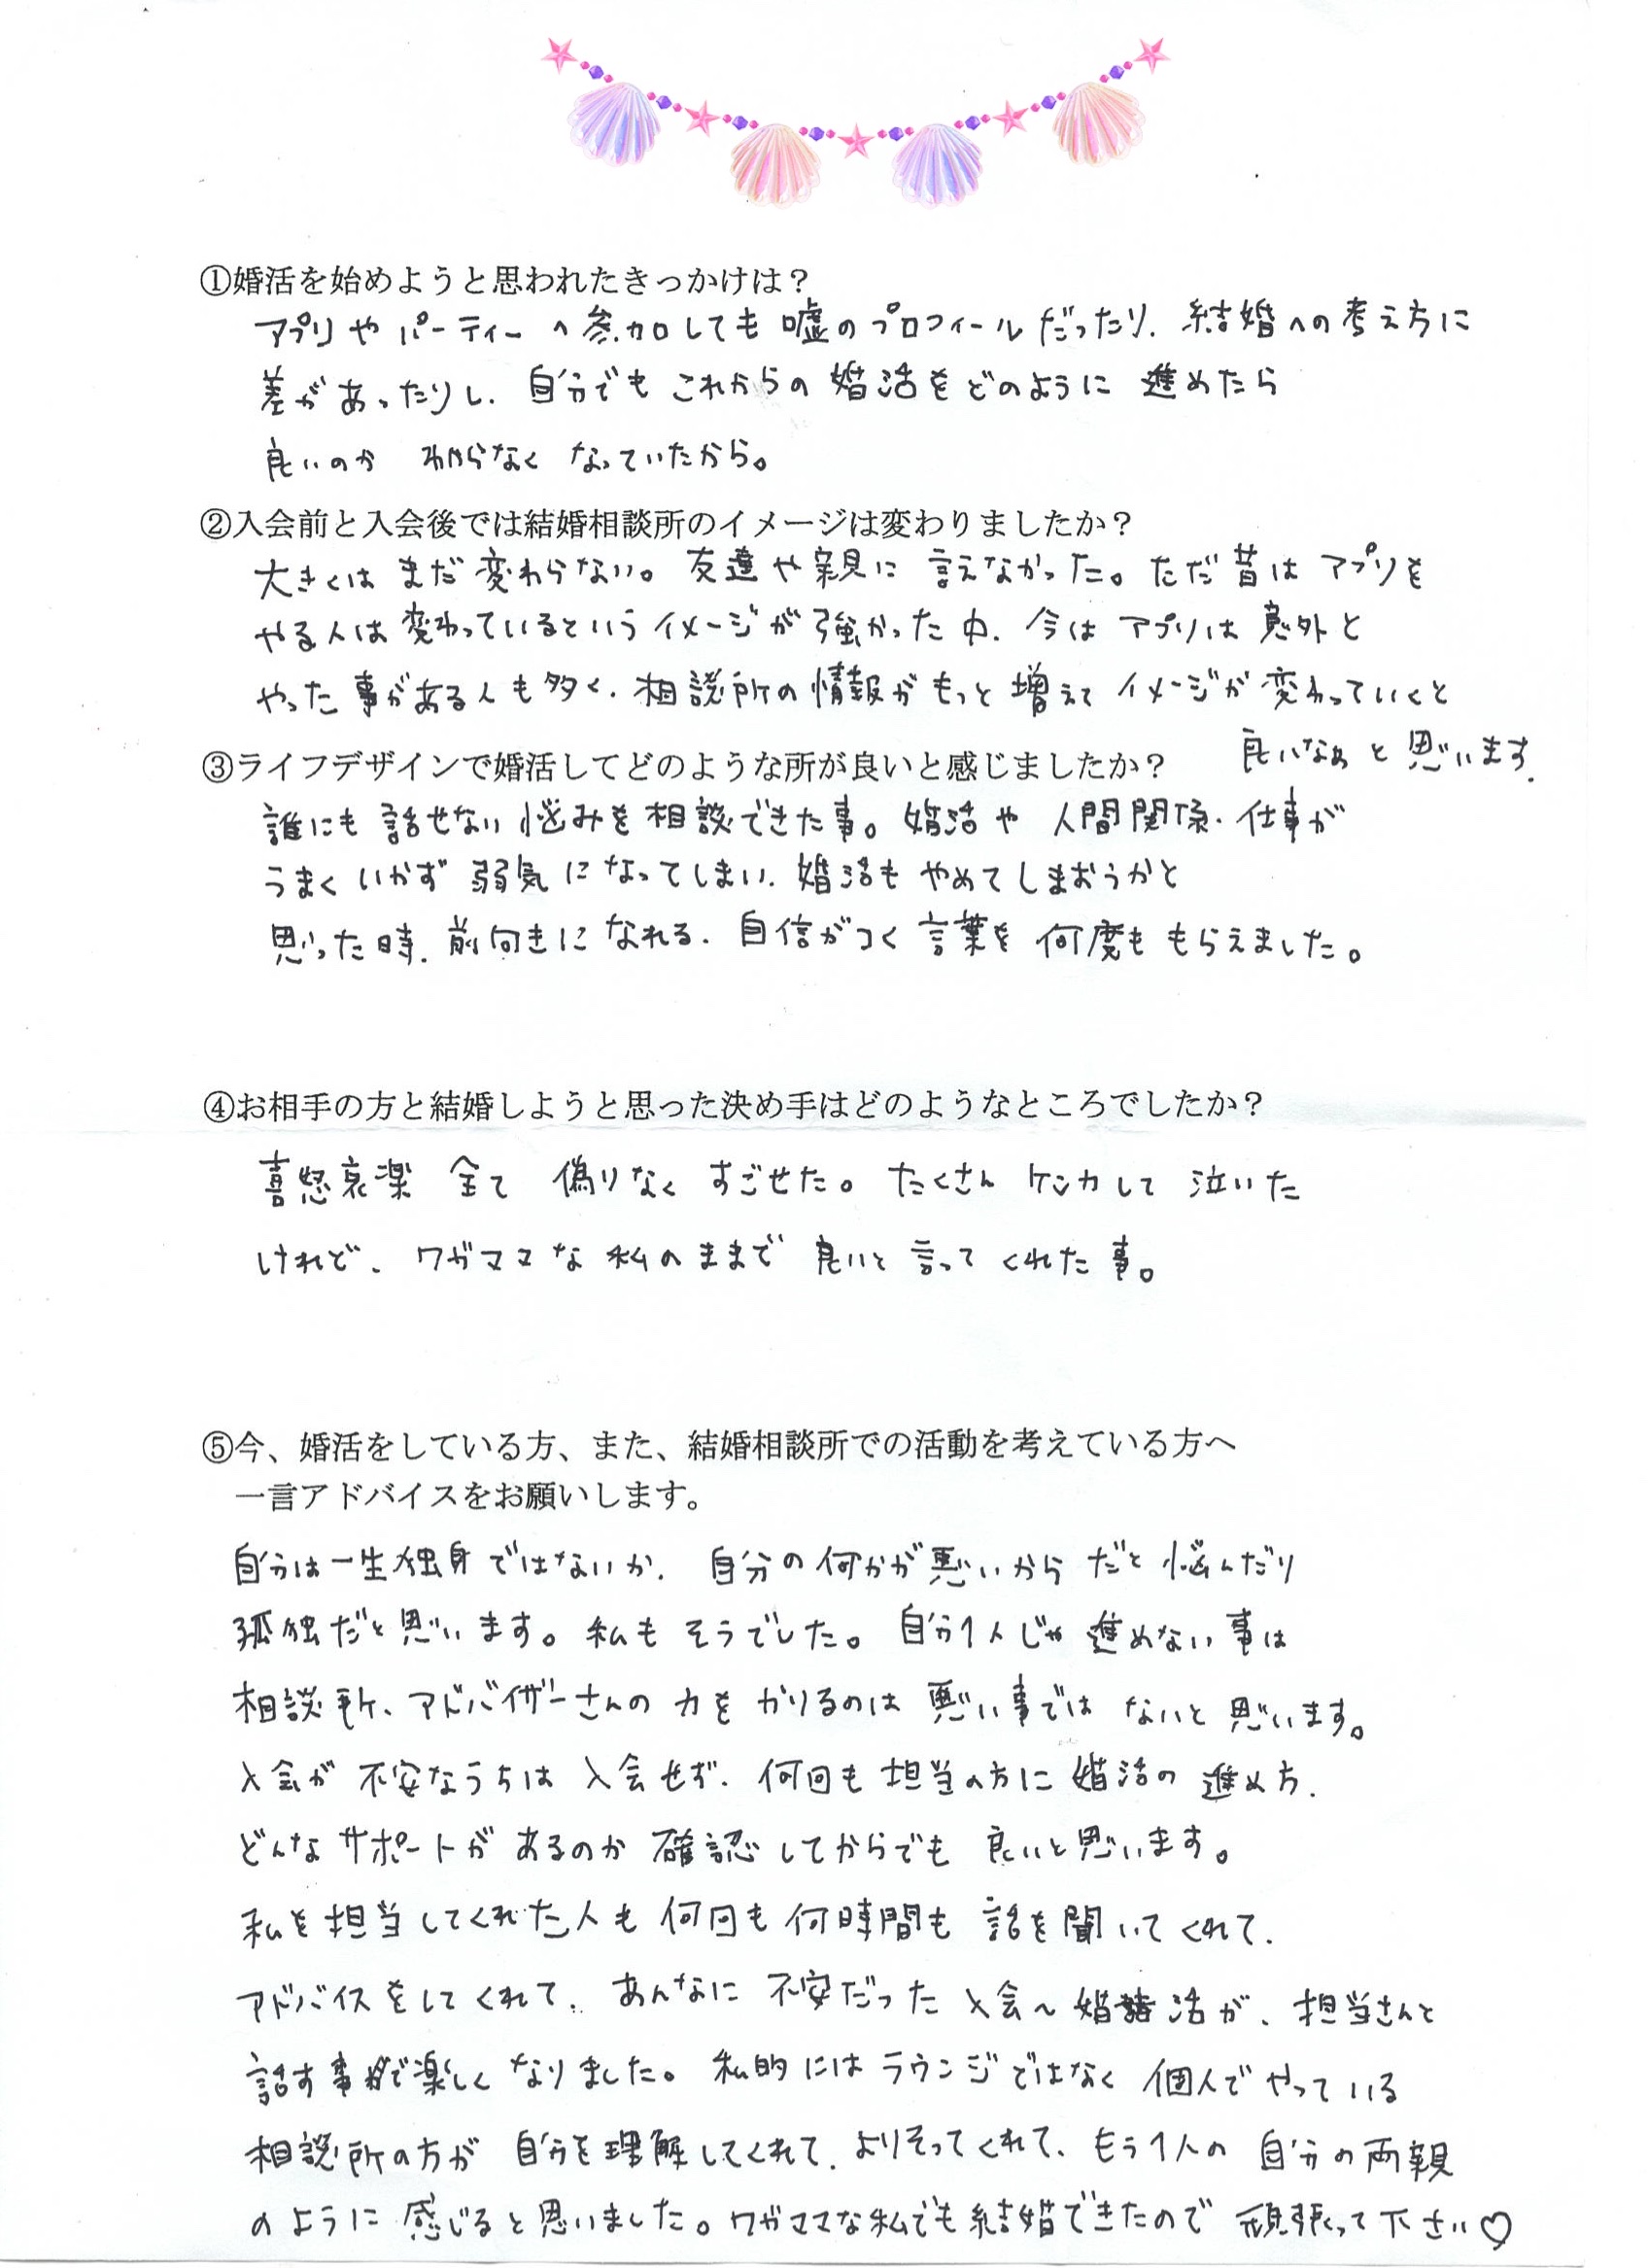 ①婚活を始めようと思われたきっかけは？
アプリやパーティーへ参加しても嘘のプロフィールだったり、結婚への考え方に
差があったりし、自分でもこれからの婚活をどのように進めたら
良いのかわからなくなっていたから。
②入会前と入会後では結婚相談所のイメージは変わりましたか？
大きくはまだ変わらない。友達や親に言えなかった。ただ昔はアプリを
やる人は変わっているというイメージが強かった中、今はアプリは意外と
やった事がある人も多く、相談所の情報がもっと増えてイメージが変わっていくと
良いなぁと思います。
③ライフデザインで婚活してどのような所が良いと感じましたか？
誰にも話せない悩みを相談できた事。婚活や人間関係、仕事が
うまくいかず弱気になってしまい、婚活もやめてしまおうかと
思った時、前向きになれる、自信がつく言葉を何度ももらえました。
④お相手の方と結婚しようと思った決め手はどのようなところでしたか？
喜怒哀楽全て偽りなくすごせた。たくさんケンカして泣いた
けれど、ワガママな私のままで良いと言ってくれた事。
⑤今、婚活をしている方、また、結婚相談所での活動を考えている方へ
一言アドバイスをお願いします。
自分は一生独身ではないか、自分の何かが悪いからだと悩んだり
孤独だと思います。私もそうでした。自分1人じゃ進めない事は
相談所、アドバイザーさんの力をかりるのは悪い事ではないと思います。
入会が不安なうちは入会せず、何回も担当の方に婚活の進め方、
どんなサポートがあるのか確認してからでも良いと思います。
私を担当してくれた人も何回も何時間も話を聞いてくれて、
アドバイスをしてくれて、あんなに不安だった入会〜婚活が、担当さんと
話す事で楽しくなりました。私的にはラウンジではなく個人でやっている
相談所の方が自分を理解してくれて、よりそってくれて、もう1人の自分の両親
のように感じると思いました。ワガママな私でも結婚できたので頑張って下さい♡